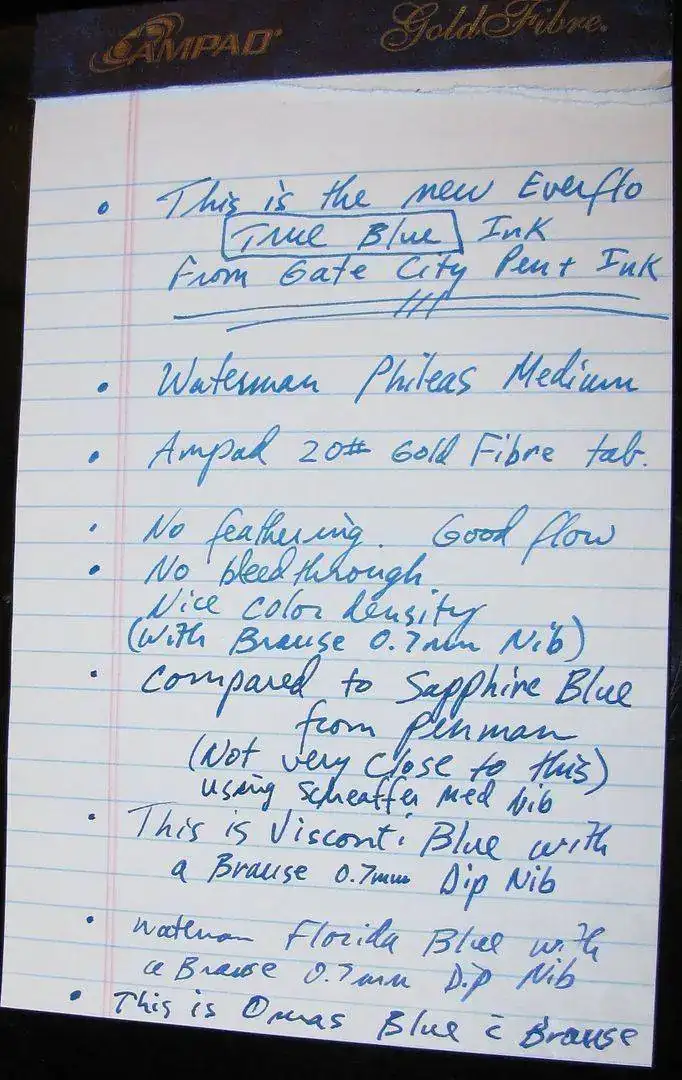 AMPAD Gold Fibre.
• This is the new Everflo
True Blue Ink
From Gate City Pen + Ink
• Waterman Phileas Medium
• Ampad 20# Gold Fibre tab.
• No feathering. Good flow
• No bleedthrough
Nice color density
(with Brause 0.7mm Nib)
• Compared to Sapphire Blue
from penman
(Not very close to this)
using Scheaffer Med Nib
• This is Visconti Blue with
a Brause 0.7mm Dip Nib
• Waterman Florida Blue with
a Brause 0.7mm Dip Nib
• This is Omas Blue c̄ Brause